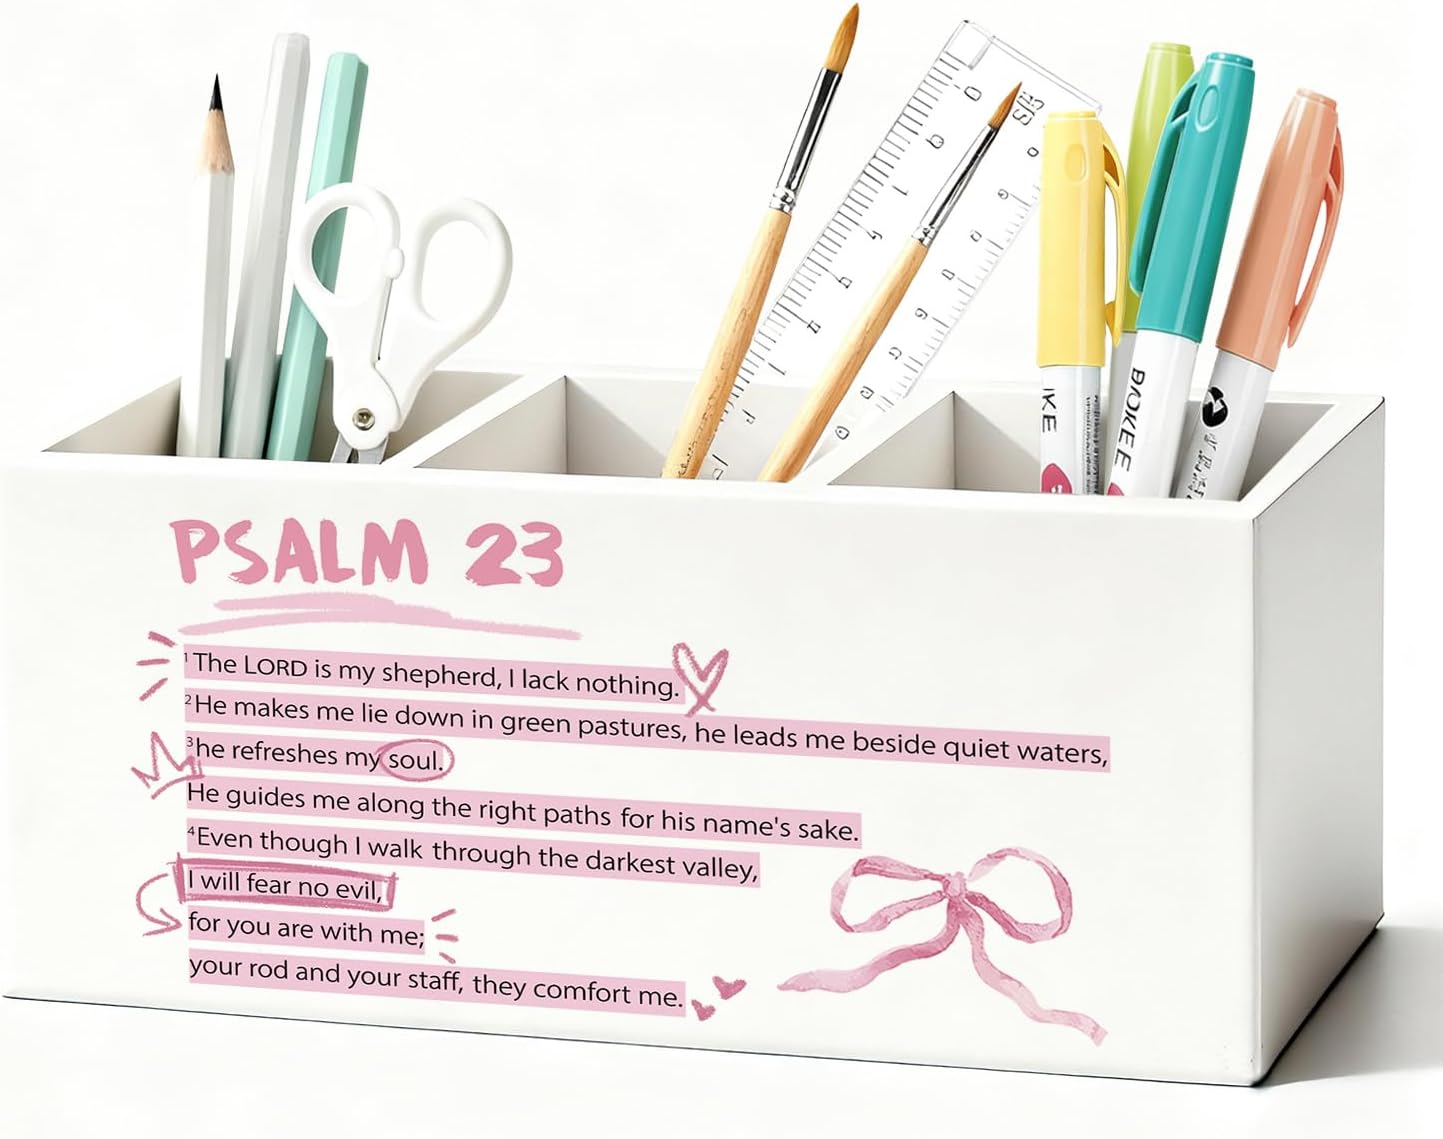 PSALM 23
1 The LORD is my shepherd, I lack nothing.
2 He makes me lie down in green pastures, he leads me beside quiet waters,
3 he refreshes my soul.
He guides me along the right paths for his name's sake.
4 Even though I walk through the darkest valley,
I will fear no evil,
for you are with me;
your rod and your staff, they comfort me.
IKE